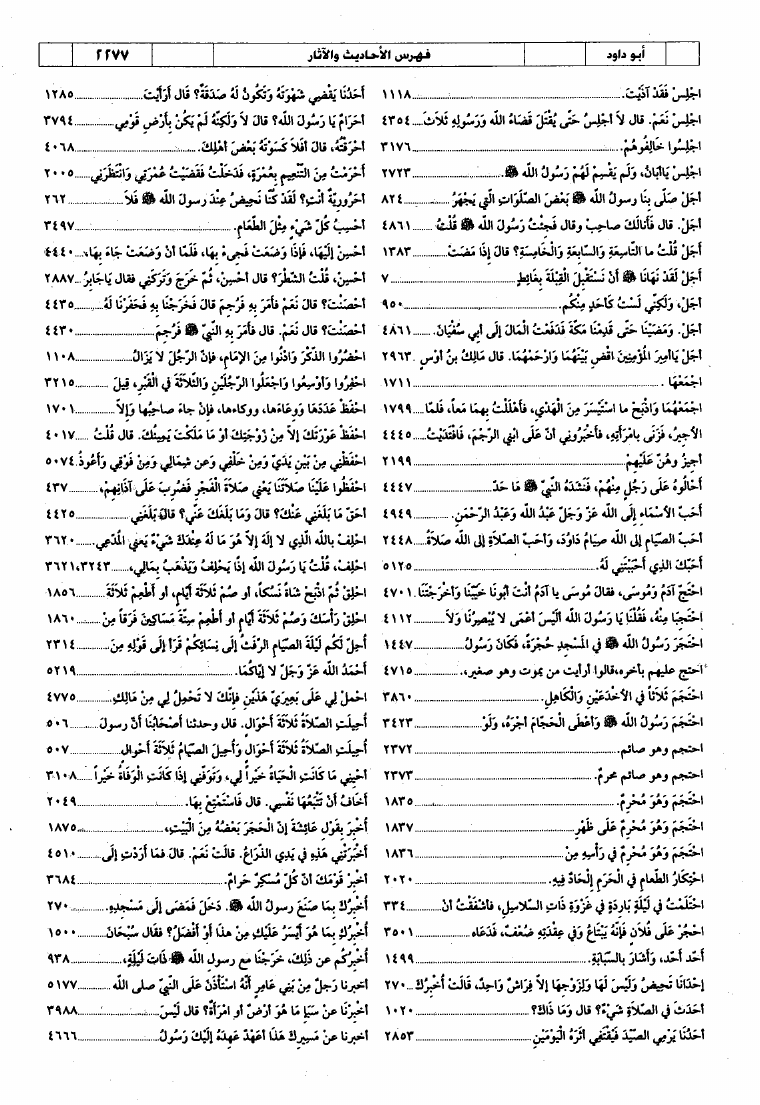 أبو داود
فهرس الأحاديث والآثار
٢٢٧٧
اجْلِسْ فَقَدْ آذَيْتَ. ١١١٨
اجْلِسْ نَعَمْ. قال لاَ أجْلِسُ حَتَّى يُقْتَلَ قَضَاءُ الله وَرَسُولِهِ ثَلاَثَ ٤٣٥٤
اجْلِسُوا خَالِفُوهُمْ. ٣١٧٦
اجْلِسْ يَاأبَانُ، وَلَم يَقْسِمْ لَهُمْ رَسُولُ الله ﷺ. ٢٧٢٣
أجَلْ صَلَّى بِنَا رسولُ الله ﷺ بَعْضَ الصَّلَوَاتِ الَّتِي يَجْهَرُ ٨٢٤
أجَلْ. قال فَأنَالَكَ صاحِبٌ وقال فَجِئْتُ رَسُولَ الله ﷺ قُلْتُ ٤٨٦١
أجَلْ قُلْتُ ما التَّاسِعَةِ والسَّابِعَةِ وَالْخَامِسَةِ؟ قالَ إذَا مَضَتْ ١٣٨٣
أجَلْ لَقَدْ نَهَانَا ﷺ أنْ نَسْتَقْبِلَ القِبْلَةَ بِغَائِطٍ ٧
أجَلْ، وَلَكِنِّي لَسْتُ كَأحَدٍ مِنْكُم. ٩٥٠
أجَلْ. وَمَضَيْنَا حَتَّى قَدِمْنَا مَكَّةَ فَدَفَعْتُ المَالَ إلى أبي سُفْيَانَ. ٤٨٦١
أجَلْ يَاأمِيرَ المُؤْمِنِينَ اقْضِ بَيْنَهُمَا وَارْحَمْهُمَا. قال مَالِكُ بنُ أوْسٍ. ٢٩٦٣
اجْمَعْهَا. ١٧١١
اجْمَعْهُمَا وَاذْبَحْ ما اسْتَيْسَرَ مِنَ الْهَدْيِ، فَأهْلَلْتُ بِهِمَا مَعاً، فَلَمَّا ١٧٩٩
الأجِيرُ، فَزَنَى بامْرَأتِهِ، فأخْبَرُونِي أنَّ عَلَى ابْنِي الرَّجْمَ، فَافْتَدَيْتُ ٤٤٤٥
أجِيزُ وهُنَّ عَلَيْهِمْ ٢١٩٩
أحَالُوهُ عَلَى رَجُلٍ مِنْهُمْ، فَنَشَدَهُ النَّبيُّ ﷺ مَا حَدّ ٤٤٤٧
أحَبّ الأسْمَاءِ إلَى الله عَزّ وَجَلّ عَبْدُ الله وَعَبْدُ الرَّحْمَنِ. ٤٩٤٩
أحَبّ الصِّيَامِ إلى الله صِيَامُ دَاوُدَ، وَأحَبّ الصّلاَةِ إلى الله صَلاَةُ ٢٤٤٨
أحَبَّكَ الّذِي أحْبَبْتَنِي لَهُ. ٥١٢٥
احْتَجَّ آدَمُ وَمُوسَى، فقالَ مُوسَى يا آدَمُ أنْتَ أبُونَا خَيَّبْتَنَا وأخْرَجْتَنَا ٤٧٠١
احْتَجِبَا مِنْهُ، فَقُلْنَا يَا رَسُولَ الله ألَيْسَ أعْمَى لا يُبْصِرُنَا وَلاَ ٤١١٢
احْتَجَرَ رَسُولُ الله ﷺ في المَسْجِدِ حُجْرَةً، فَكَانَ رَسُولُ ١٤٤٧
احتج عليهم بآخره،قالوا أرأيت من يموت وهو صغير،. ٤٧١٥
احْتَجَمَ ثَلاَثاً في الأخْدَعَيْنِ وَالْكَاهِلِ. ٣٨٦٠
احْتَجَمَ رَسُولُ الله ﷺ وَأعْطَى الْحَجَّامَ أجْرَهُ، وَلَوْ ٣٤٢٣
احتجم وهو صائم. ٢٣٧٢
احتجم وهو صائم محرم. ٢٣٧٣
احْتَجَمَ وَهُوَ مُحْرِمٌ. ١٨٣٥
احْتَجَمَ وَهُوَ مُحْرِمٌ عَلَى ظَهْرِ ١٨٣٧
احْتَجَمَ وَهُوَ مُحْرِمٌ في رَأسِهِ مِنْ ١٨٣٦
احْتِكَارُ الطَّعَامِ في الْحَرَمِ إلْحَادٌ فِيهِ. ٢٠٢٠
احْتَلَمْتُ في لَيْلَةٍ بَارِدَةٍ في غَزْوَةِ ذَاتِ السَّلاَسِلِ، فأشْفَقْتُ أنْ ٣٣٤
احْجُرْ عَلَى فُلاَنٍ فَإنَّهُ يَبْتَاعُ وَفي عِقْدَتِهِ ضُعْفٌ، فَدَعَاه ٣٥٠١
أحَد أحَد، وَأشَارَ بالسَّبَابَةِ. ١٤٩٩
إحْدَانَا تَحِيضُ وَلَيْسَ لَهَا وَلِزَوْجِهَا إلاّ فِرَاشٌ وَاحِدٌ، قَالَتْ أُخْبِرُكِ ٢٧٠
أحَدَثَ في الصَّلاَةِ شَيْءٌ؟ قالَ وَمَا ذَاكَ؟ ١٠٢٠
أحَدُنَا يَرْمِي الصَّيْدَ فَيَقْتَفِي أثَرَهُ الْيَوْمَيْنِ ٢٨٥٣
أحَدُنَا يَقْضِي شَهْوَتَهُ وَتَكُونُ لَهُ صَدَقَةٌ؟ قال أرَأيْتَ ١٢٨٥
أحَرَامٌ يَا رَسُولَ الله؟ قالَ لاَ وَلَكِنَّهُ لَمْ يَكُنْ بِأَرْضِ قَوْمِي ٣٧٩٤
أحْرَقْتُهُ، قالَ أفَلاَ كَسَوْتَهُ بَعْضَ أهْلِكَ. ٤٠٦٨
أحْرَمْتُ مِنَ التَّنْعِيمِ بِعُمْرَةٍ، فَدَخَلْتُ فَقَضَيْتُ عُمْرَتِي وَانْتَظَرَنِي ٢٠٠٥
أحَرُورِيّةٌ أنْتِ؟ لَقَدْ كُنَّا نَحِيضُ عِنْدَ رسولِ الله ﷺ فَلاَ ٢٦٢
أحْسِبُ كُلَّ شَيْءٍ مِثْلَ الطَّعَامِ. ٣٤٩٧
أحْسِنْ إلَيْهَا، فَإذَا وَضَعَتْ فَجِيءْ بِهَا، فَلَمَّا أنْ وَضَعَتْ جَاءَ بِهَا، ٤٤٤٠
أحْسِنْ، قُلْتُ الشَّطْرَ؟ قال أحْسِنْ، ثُمَّ خَرَجَ وَتَرَكَنِي فقال يَاجَابِرُ ٢٨٨٧
أحْصَنْتَ؟ قال نَعَمْ فأمَرَ بِهِ فَرُجِمَ قالَ فَخَرَجْنَا بِهِ فَحَفَرْنَا لَهُ ٤٤٣٥
أحْصَنْتَ؟ قال نَعَمْ. قال فأمَرَ بِهِ النّبيّ ﷺ فَرُجِمَ ٤٤٣٠
احْضُرُوا الذِّكْرَ وَادْنُوا مِنَ الإمَامِ، فإنَّ الرَّجُلَ لا يَزَالُ ١١٠٨
احْفِرُوا وَأوْسِعُوا وَاجْعَلُوا الرَّجُلَيْنِ وَالثَّلاَثَةَ في الْقَبْرِ، قِيلَ ٣٢١٥
احْفَظْ عَدَدَهَا وَوِعَاءَهَا، ووِكَاءها، فإنْ جاءَ صاحِبُها وَإلاّ ١٧٠١
احْفَظْ عَوْرَتَكَ إلاّ مِنْ زَوْجَتِكَ أوْ مَا مَلَكَتْ يَمِينُكَ. قال قُلْتُ ٤٠١٧
احْفَظْنِي مِنْ بَيْنِ يَدَيَّ وَمِنْ خَلْفِي وَعن شِمَالِي وَمِنْ فَوْقِي وَأعُوذُ ٥٠٧٤
احْفَظُوا عَلَيْنَا صَلاَتَنَا يَعْنِي صَلاَةَ الْفَجْرِ فَضُرِبَ عَلَى آذَانِهِمْ، ٤٣٧
أحَقّ مَا بَلَغَنِي عَنْكَ؟ قالَ وَمَا بَلَغَكَ عَنِّي؟ قالَ بَلَغَنِي ٤٤٢٥
احْلِفْ بالله الَّذِي لا إلَهَ إلاّ هُوَ مَا لَهُ عِنْدَكَ شَيْءٌ يَعْني المُدَّعِي. ٣٦٢٠
احْلِفْ، قُلْتُ يَا رَسُولَ الله إذًا يَحْلِفُ وَيَذْهَبُ بِمَالِي، ٣٦٢١،٣٢٤٣
احْلِقْ ثُمَّ اذْبَحْ شَاةً نُسُكاً، أو صُمْ ثَلاَثَةَ أيّامٍ، أو أطْعِمْ ثَلاَثَةَ ١٨٥٦
احْلِقْ رَأسَكَ وَصُمْ ثَلاَثَةَ أيّامٍ أو أطْعِمْ سِتّةَ مَسَاكِينَ فَرَقاً مِنْ ١٨٦٠
أُحِلّ لَكُم لَيْلَةَ الصّيَامِ الرّفَثُ إلَى نِسَائِكُمْ قَرَأ إلَى قَوْلِهِ مِنَ ٢٣١٤
أحْمَدُ الله عَزّ وَجَلّ لا إيّاكُمَا. ٥٢١٩
احْمِلْ لِي عَلَى بَعِيرَيّ هَذَيْنِ فإنَّكَ لا تَحْمِلُ لِي مِنْ مَالِكِ، ٤٧٧٥
أُحِيلَتِ الصَّلاَةُ ثَلاَثَةَ أحْوَالٍ. قال وحدثنا أصْحَابُنَا أنّ رسولَ ٥٠٦
أُحِيلَتِ الصّلاَةُ ثَلاَثَةَ أحْوَالٍ وَأُحِيلَ الصّيَامُ ثَلاَثَةَ أحْوالٍ ٥٠٧
أحْيِنِي مَا كَانَتِ الْحَيَاةُ خَيْراً لِي، وَتَوَفّنِي إذَا كَانَتِ الْوَفَاةُ خَيْراً ٣١٠٨
أخَافُ أنْ تَتْبَعُهَا نَفْسِي. قال فَاسْتَمْتِعْ بِهَا. ٢٠٤٩
أُخْبِرَ بِقَوْلِ عَائِشَةَ إنَّ الْحَجَرَ بَعْضُهُ مِنَ الْبَيْتِ، ١٨٧٥
أخْبَرَتْنِي هَذِهِ في يَدِي الذّرَاعُ. قالَتْ نَعَمْ. قالَ فمَا أرَدْتِ إلَى ٤٥١٠
أخْبِرْ قَوْمَكَ أنّ كُلّ مُسْكِرٍ حَرامٌ. ٣٦٨٤
أُخْبِرُكِ بِمَا صَنَعَ رسولُ الله ﷺ. دَخَلَ فَمَضَى إلَى مَسْجِدِهِ. ٢٧٠
أُخْبِرُكِ بِمَا هُوَ أيْسَرُ عَلَيْكِ مِنْ هذَا أوْ أفْضَلُ؟ فقالَ سُبْحَانَ ١٥٠٠
أُخْبِرُكُم عن ذَلِكَ، خَرَجْنَا مع رسولِ الله ﷺ ذَاتَ لَيْلَةٍ، ٩٣٨
اخبرنا رَجلٌ مِنْ بَنِي عَامِرٍ أنّهُ اسْتَأذَنَ عَلَى النّبيّ صلى الله ٥١٧٧
أخْبِرْنَا عَنْ سَبَإ مَا هُوَ أرْضٌ أو امْرَأةٌ؟ قال لَيْسَ ٣٩٨٨
اخبرنا عنْ مَسِيرِكَ هَذَا أعَهْدٌ عَهِدَهُ إلَيْكَ رَسُولُ ٤٦٦٦